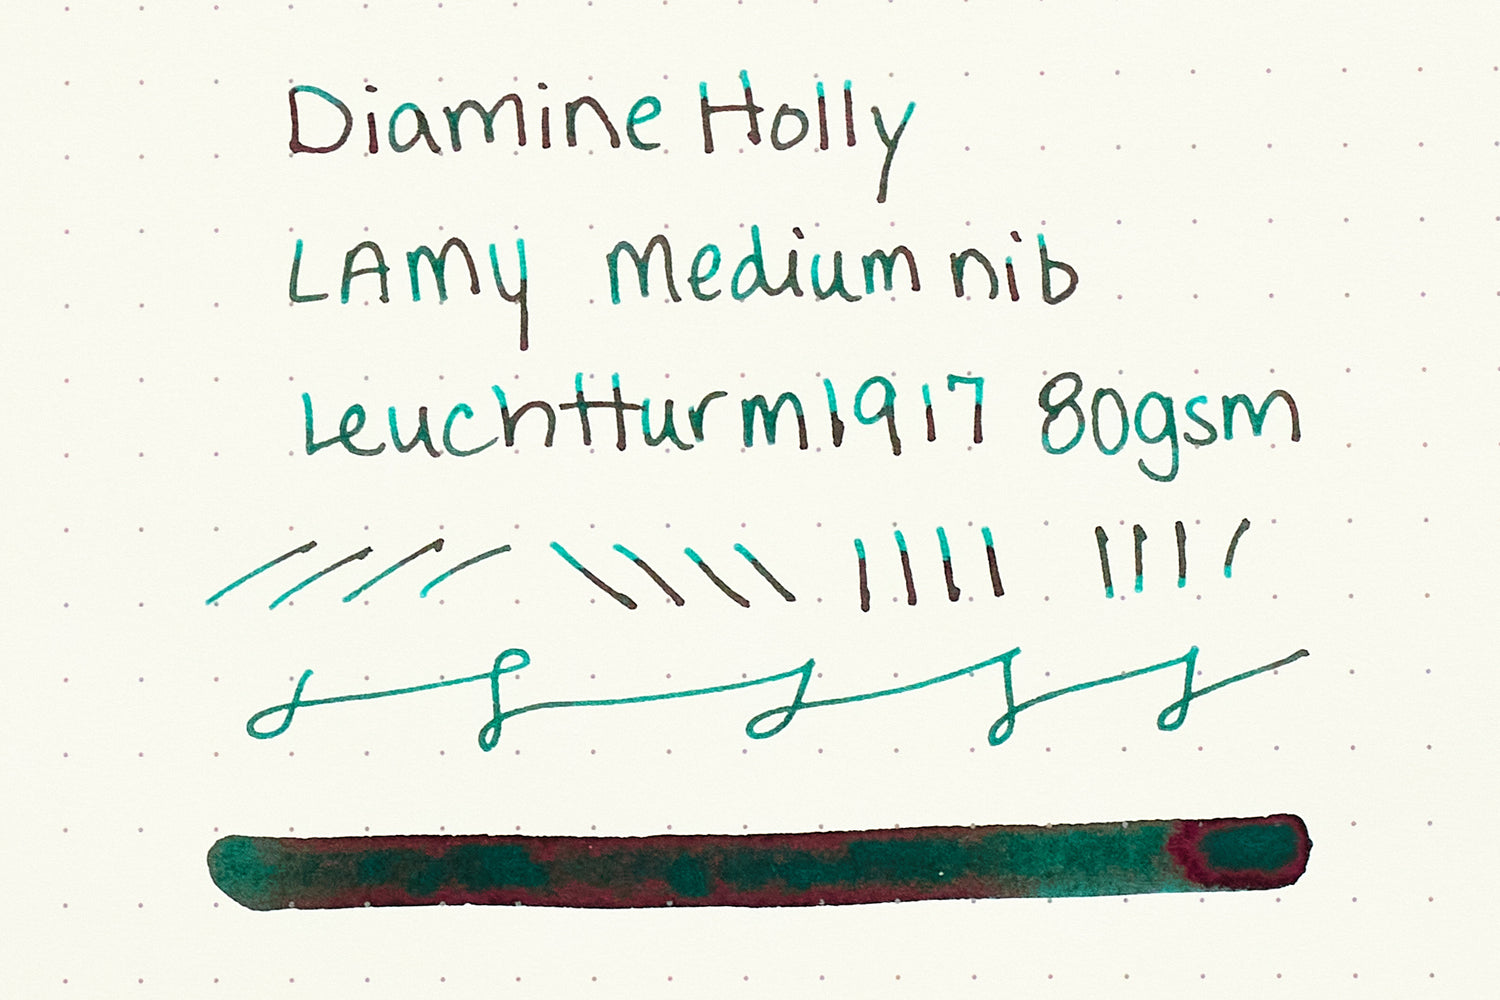 Diamine Holly
LAMY Medium nib
Leuchtturm1917 80gsm